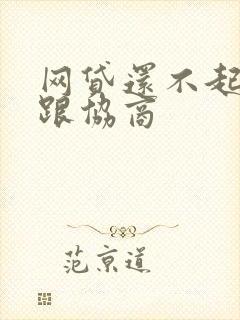 网贷还不起
跟协商
范京道